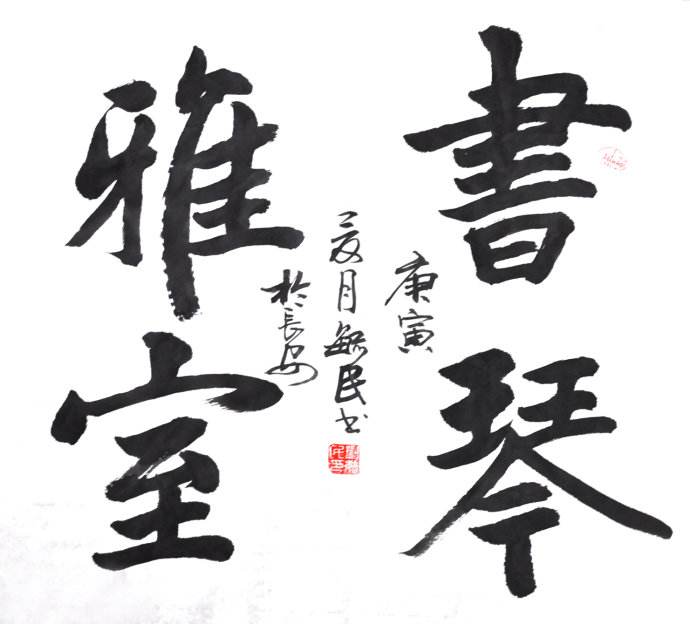 書琴
雅室
庚寅
夏月毓民书
於長安